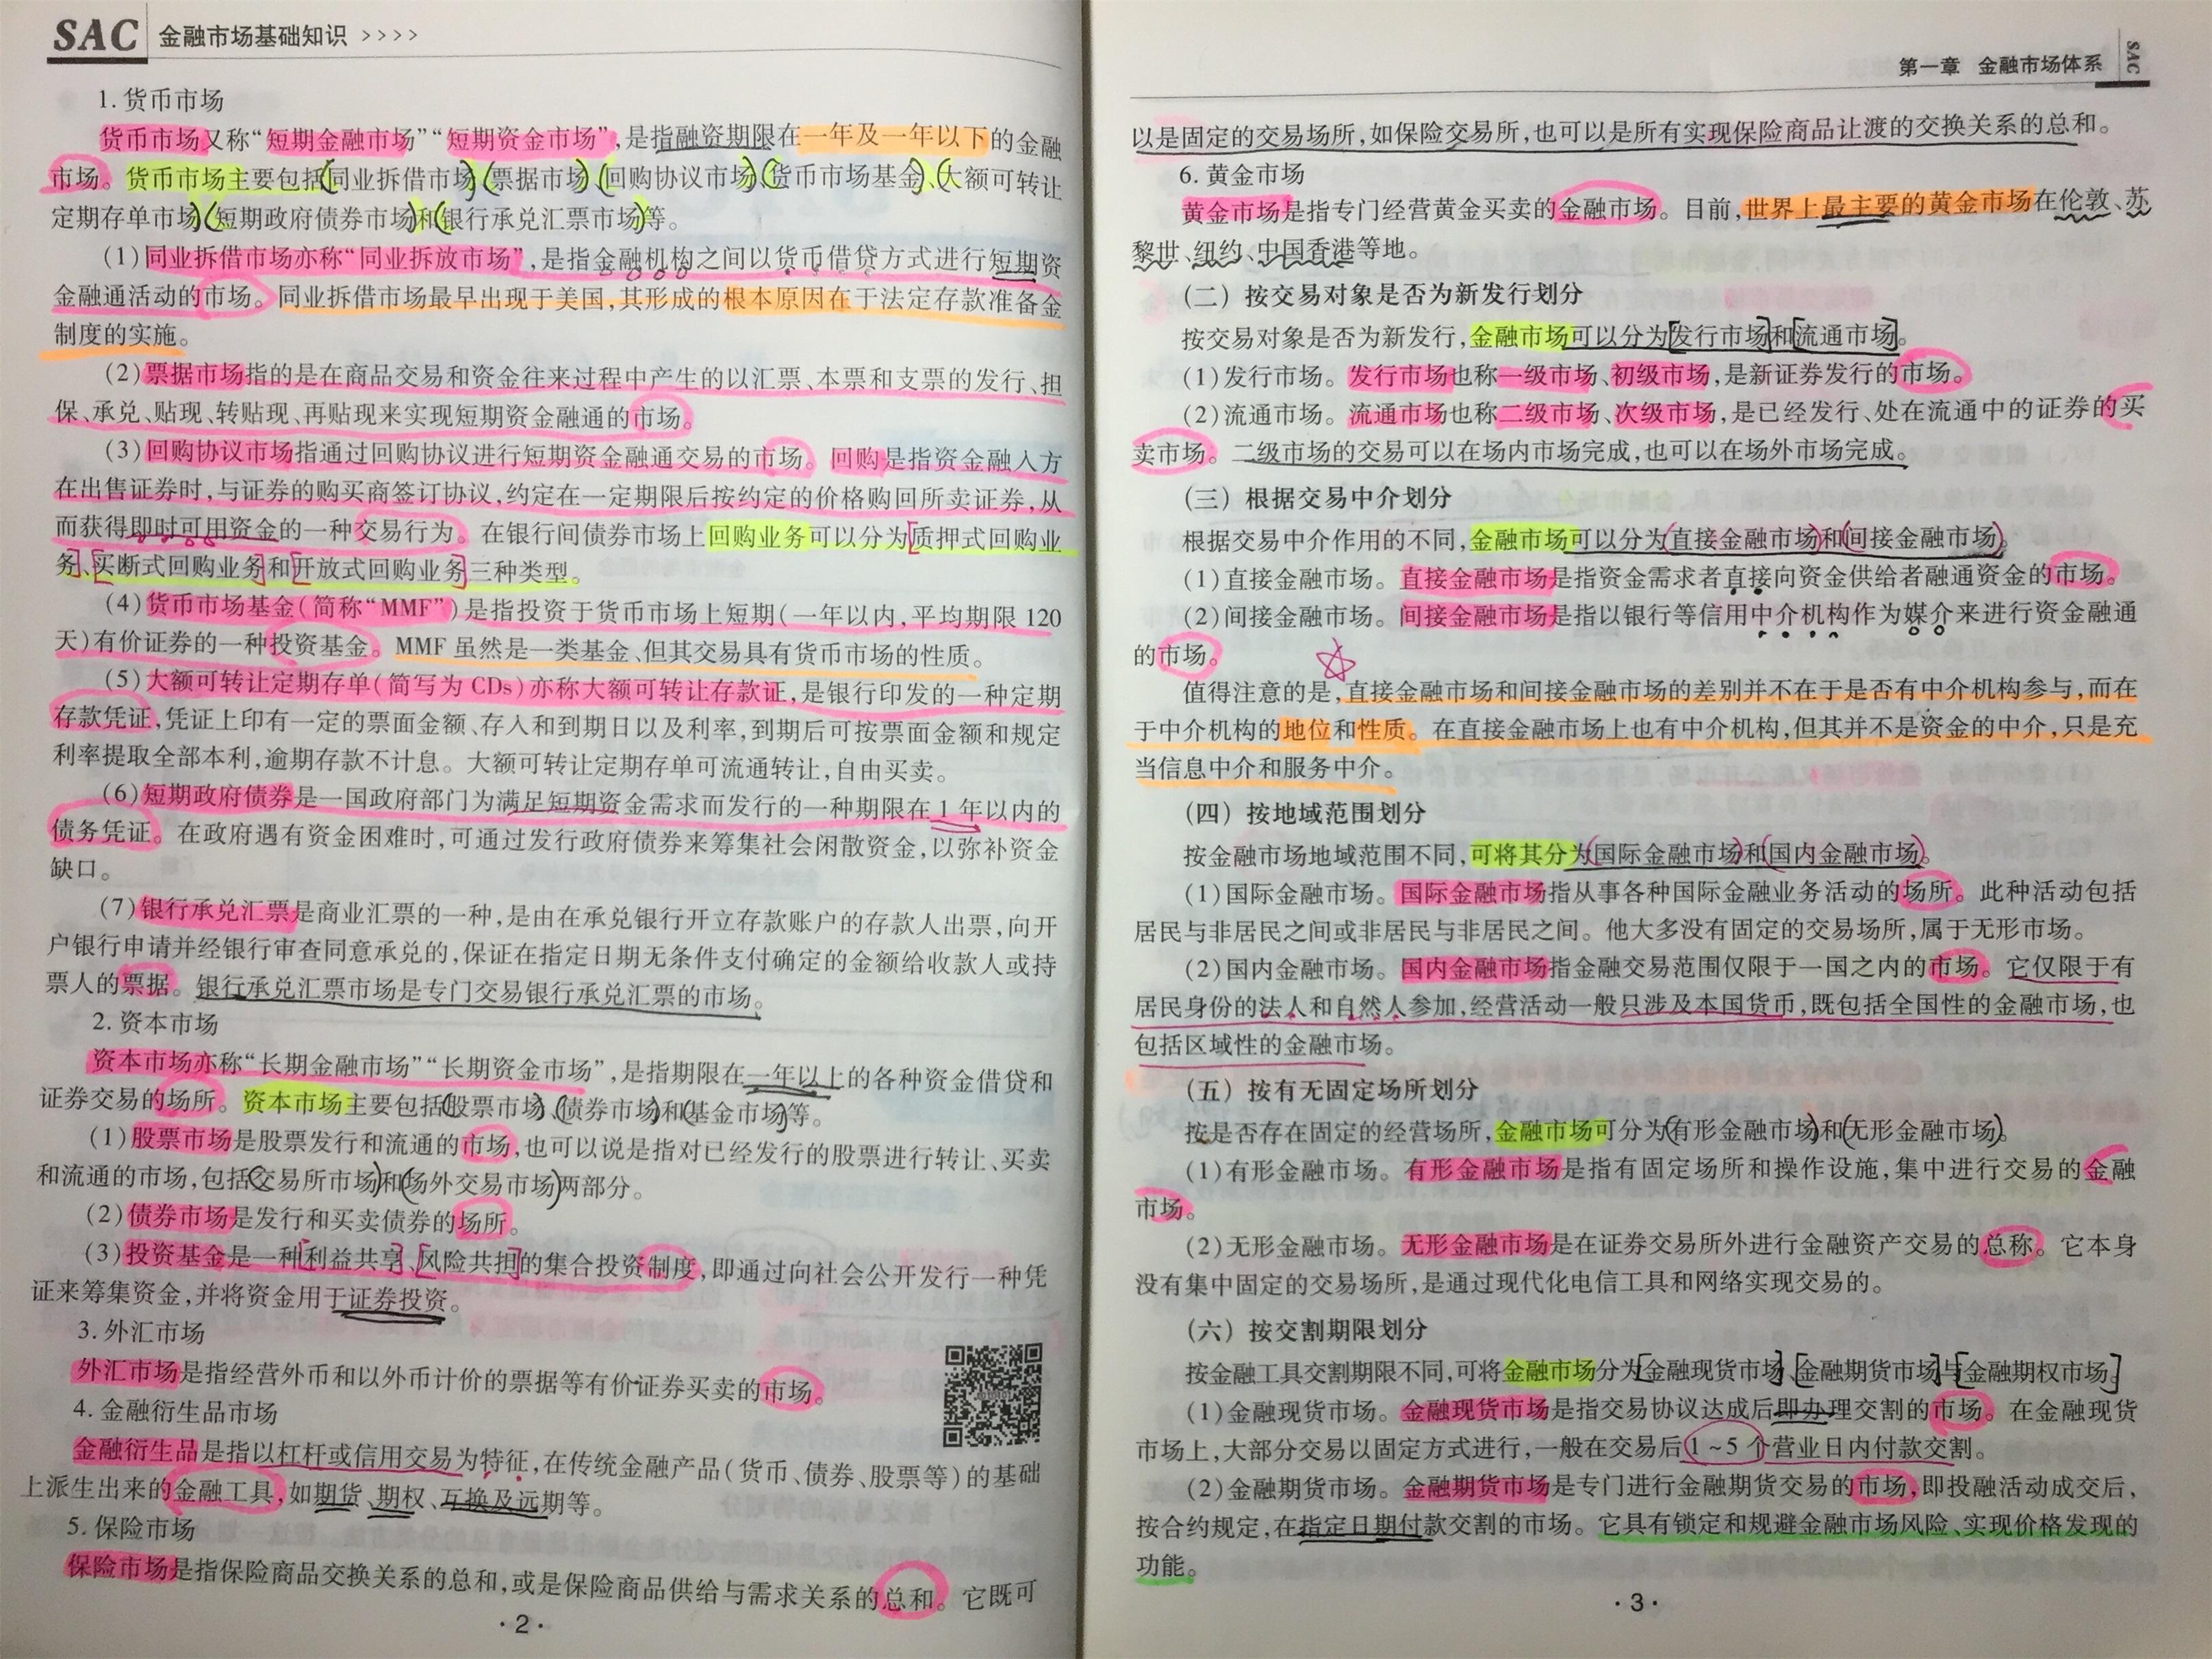 SAC 金融市场基础知识 >>>>
1. 货币市场
货币市场又称“短期金融市场”“短期资金市场”,是指融资期限在一年及一年以下的金融
市场。货币市场主要包括同业拆借市场、票据市场、回购协议市场、货币市场基金、大额可转让
定期存单市场、短期政府债券市场和银行承兑汇票市场等。
(1)同业拆借市场亦称“同业拆放市场”,是指金融机构之间以货币借贷方式进行短期资
金融通活动的市场。同业拆借市场最早出现于美国,其形成的根本原因在于法定存款准备金
制度的实施。
(2)票据市场指的是在商品交易和资金往来过程中产生的以汇票、本票和支票的发行、担
保、承兑、贴现、转贴现、再贴现来实现短期资金融通的市场。
(3)回购协议市场指通过回购协议进行短期资金融通交易的市场。回购是指资金融入方
在出售证券时,与证券的购买商签订协议,约定在一定期限后按约定的价格购回所卖证券,从
而获得即时可用资金的一种交易行为。在银行间债券市场上回购业务可以分为质押式回购业
务、买断式回购业务和开放式回购业务三种类型。
(4)货币市场基金(简称“MMF”)是指投资于货币市场上短期(一年以内,平均期限 120
天)有价证券的一种投资基金。MMF 虽然是一类基金、但其交易具有货币市场的性质。
(5)大额可转让定期存单(简写为 CDs)亦称大额可转让存款证,是银行印发的一种定期
存款凭证,凭证上印有一定的票面金额、存入和到期日以及利率,到期后可按票面金额和规定
利率提取全部本利,逾期存款不计息。大额可转让定期存单可流通转让,自由买卖。
(6)短期政府债券是一国政府部门为满足短期资金需求而发行的一种期限在 1 年以内的
债务凭证。在政府遇有资金困难时,可通过发行政府债券来筹集社会闲散资金,以弥补资金
缺口。
(7)银行承兑汇票是商业汇票的一种,是由在承兑银行开立存款账户的存款人出票,向开
户银行申请并经银行审查同意承兑的,保证在指定日期无条件支付确定的金额给收款人或持
票人的票据。银行承兑汇票市场是专门交易银行承兑汇票的市场。
2. 资本市场
资本市场亦称“长期金融市场”“长期资金市场”,是指期限在一年以上的各种资金借贷和
证券交易的场所。资本市场主要包括股票市场、债券市场和基金市场等。
(1)股票市场是股票发行和流通的市场,也可以说是指对已经发行的股票进行转让、买卖
和流通的市场,包括交易所市场和场外交易市场两部分。
(2)债券市场是发行和买卖债券的场所。
(3)投资基金是一种利益共享、风险共担的集合投资制度,即通过向社会公开发行一种凭
证来筹集资金,并将资金用于证券投资。
3. 外汇市场
外汇市场是指经营外币和以外币计价的票据等有价证券买卖的市场。
4. 金融衍生品市场
金融衍生品是指以杠杆或信用交易为特征,在传统金融产品(货币、债券、股票等)的基础
上派生出来的金融工具,如期货、期权、互换及远期等。
5. 保险市场
保险市场是指保险商品交换关系的总和,或是保险商品供给与需求关系的总和。它既可
· 2 ·
第一章 金融市场体系 SAC
以是固定的交易场所,如保险交易所,也可以是所有实现保险商品让渡的交换关系的总和。
6. 黄金市场
黄金市场是指专门经营黄金买卖的金融市场。目前,世界上最主要的黄金市场在伦敦、苏
黎世、纽约、中国香港等地。
(二)按交易对象是否为新发行划分
按交易对象是否为新发行,金融市场可以分为发行市场和流通市场。
(1)发行市场。发行市场也称一级市场、初级市场,是新证券发行的市场。
(2)流通市场。流通市场也称二级市场、次级市场,是已经发行、处在流通中的证券的买
卖市场。二级市场的交易可以在场内市场完成,也可以在场外市场完成。
(三)根据交易中介划分
根据交易中介作用的不同,金融市场可以分为直接金融市场和间接金融市场。
(1)直接金融市场。直接金融市场是指资金需求者直接向资金供给者融通资金的市场。
(2)间接金融市场。间接金融市场是指以银行等信用中介机构作为媒介来进行资金融通
的市场。
值得注意的是,直接金融市场和间接金融市场的差别并不在于是否有中介机构参与,而在
于中介机构的地位和性质。在直接金融市场上也有中介机构,但其并不是资金的中介,只是充
当信息中介和服务中介。
(四)按地域范围划分
按金融市场地域范围不同,可将其分为国际金融市场和国内金融市场。
(1)国际金融市场。国际金融市场指从事各种国际金融业务活动的场所。此种活动包括
居民与非居民之间或非居民与非居民之间。他大多没有固定的交易场所,属于无形市场。
(2)国内金融市场。国内金融市场指金融交易范围仅限于一国之内的市场。它仅限于有
居民身份的法人和自然人参加,经营活动一般只涉及本国货币,既包括全国性的金融市场,也
包括区域性的金融市场。
(五)按有无固定场所划分
按是否存在固定的经营场所,金融市场可分为有形金融市场和无形金融市场。
(1)有形金融市场。有形金融市场是指有固定场所和操作设施,集中进行交易的金融
市场。
(2)无形金融市场。无形金融市场是在证券交易所外进行金融资产交易的总称。它本身
没有集中固定的交易场所,是通过现代化电信工具和网络实现交易的。
(六)按交割期限划分
按金融工具交割期限不同,可将金融市场分为金融现货市场、金融期货市场与金融期权市场。
(1)金融现货市场。金融现货市场是指交易协议达成后即办理交割的市场。在金融现货
市场上,大部分交易以固定方式进行,一般在交易后 1~5 个营业日内付款交割。
(2)金融期货市场。金融期货市场是专门进行金融期货交易的市场,即投融活动成交后,
按合约规定,在指定日期付款交割的市场。它具有锁定和规避金融市场风险、实现价格发现的
功能。
· 3 ·